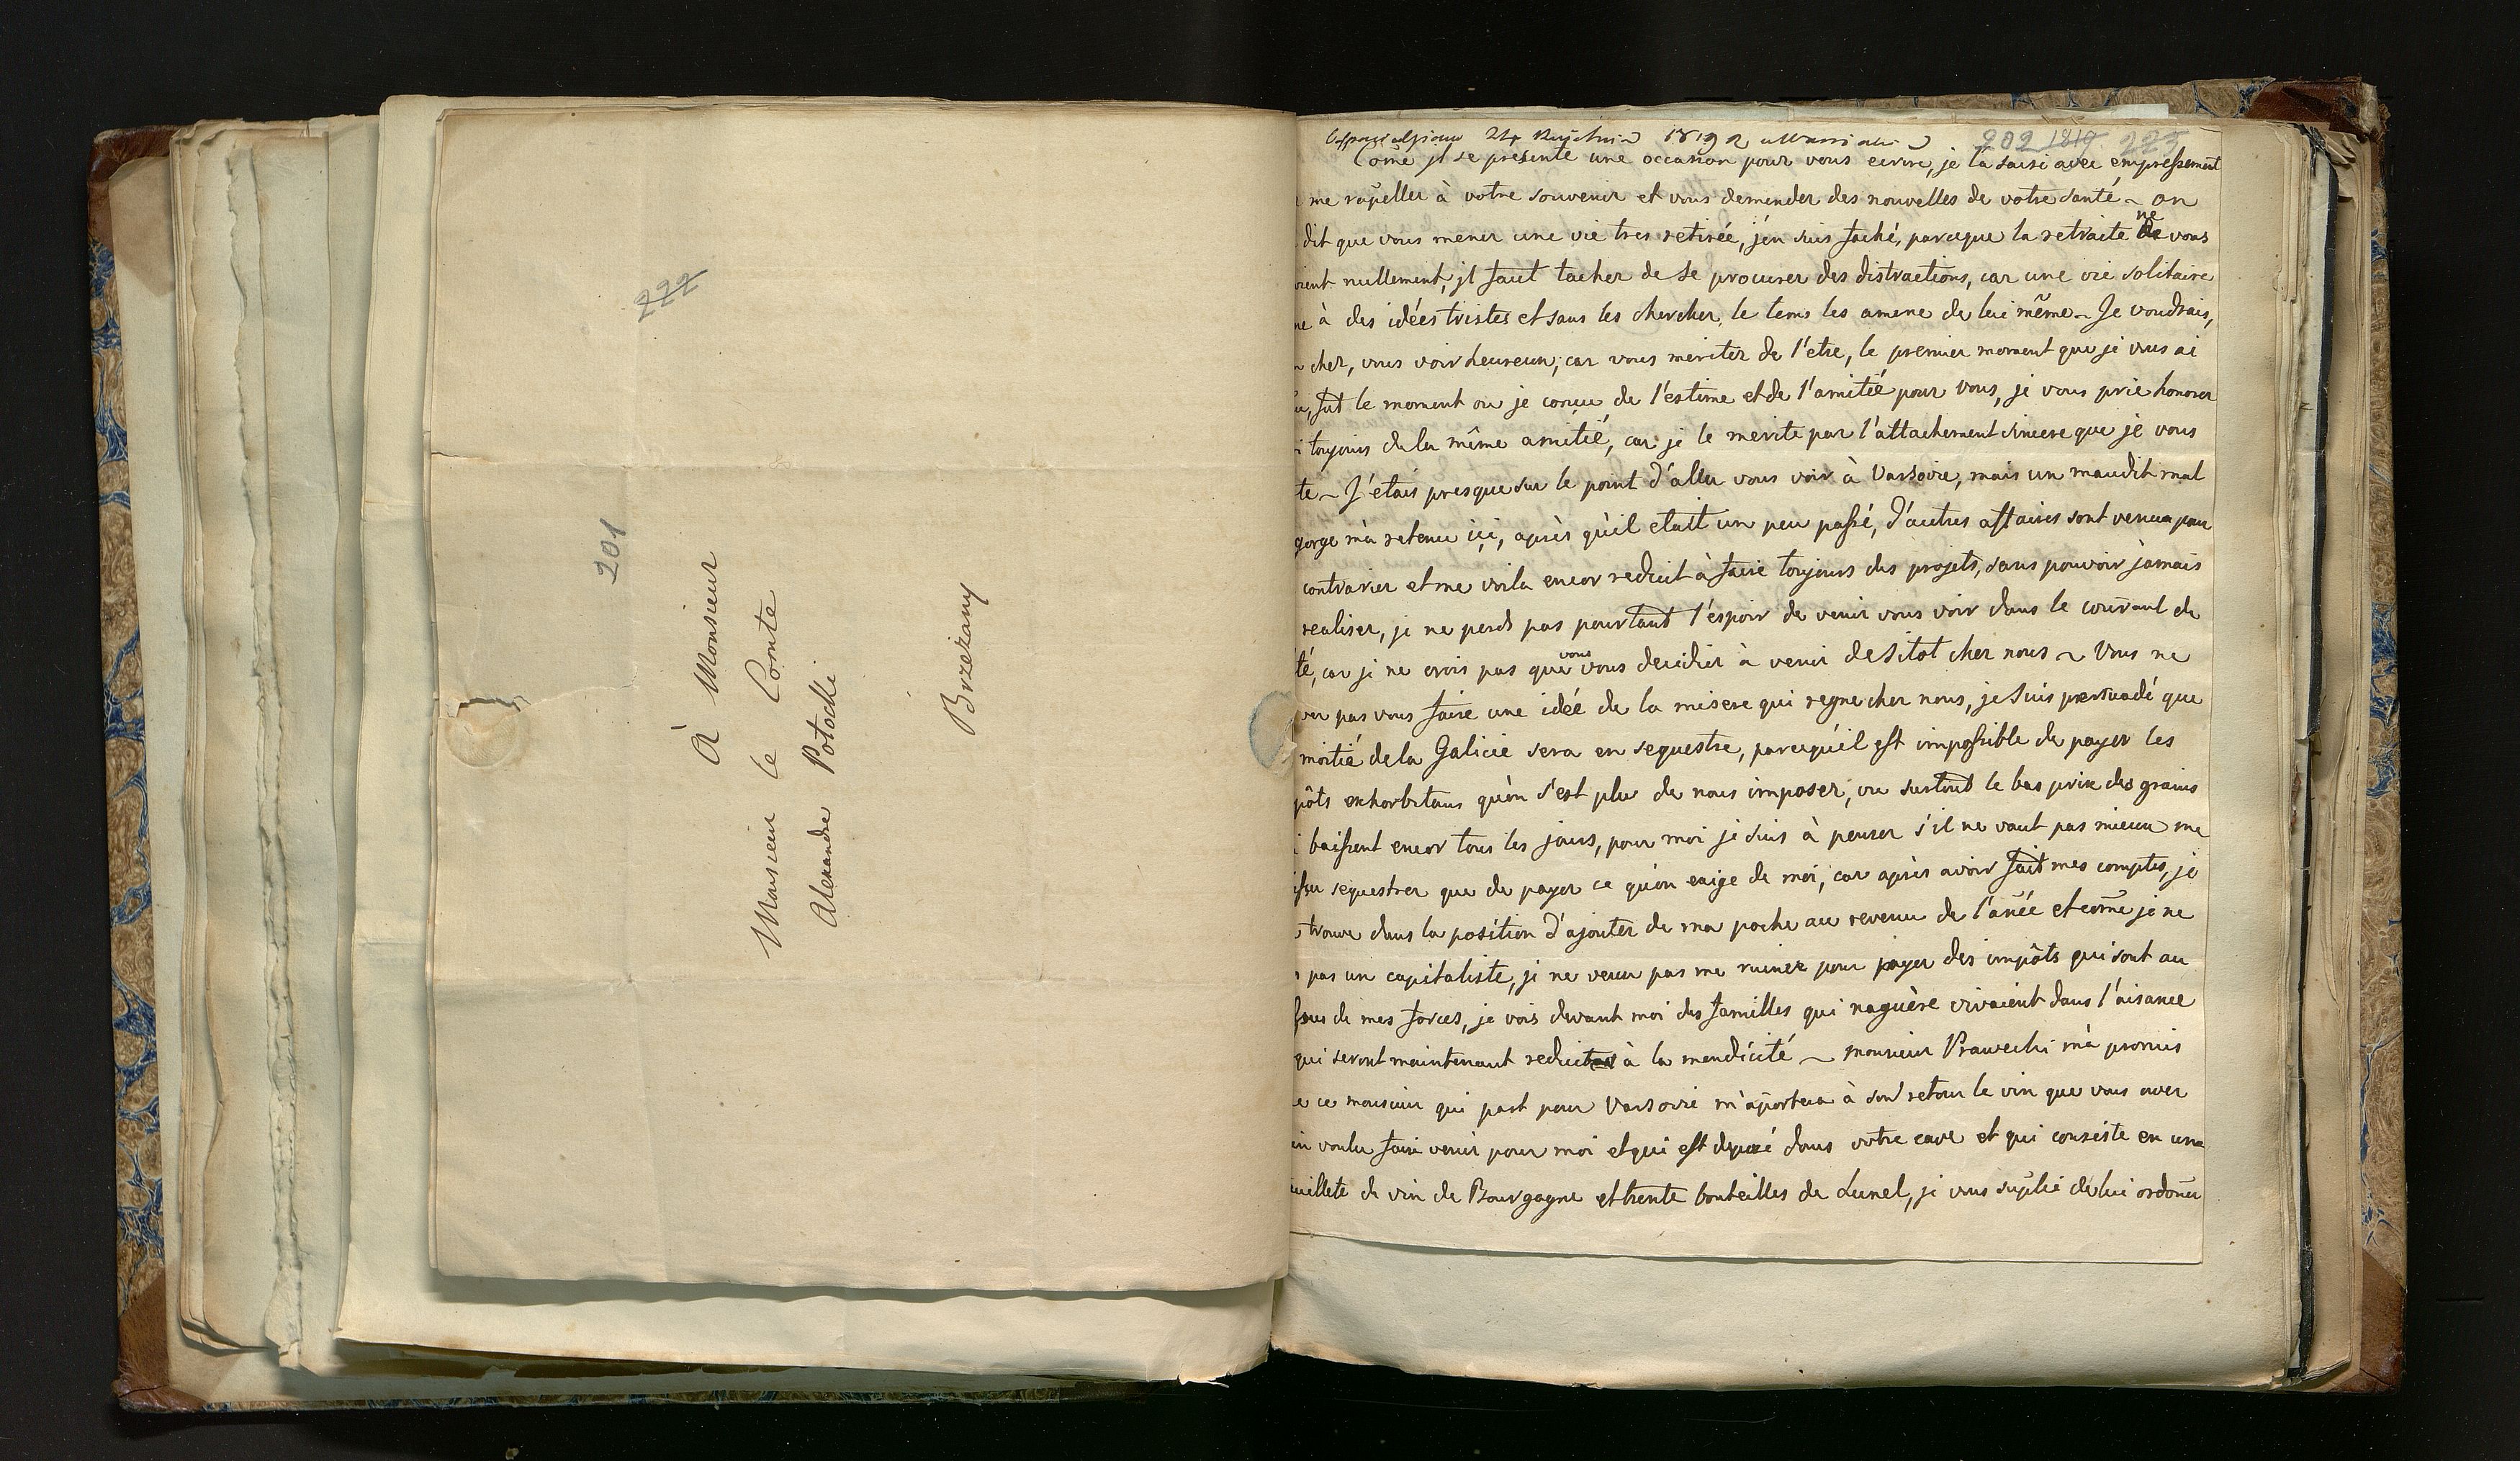 222
201
À Monsieur
Monsieur le Comte
Alexandre Potocki
Brzezany
24 1819 202 1819. 223
Com̄e jl se présente une occasion pour vous ecrire, je la saisi avec empressement
me rap̄eller à votre souvenir et vous demender des nouvelles de votre santé ~ on
dit que vous menez une vie tres retirée, j'en suis faché, parceque la retraite ne vous
vient nullement, jl faut tacher de se procurer des distractions, car une vie solitaire
ne à des idées tristes et sans les chercher, le tems les amene de lui même ~ Je voudrais,
cher, vous voir heureux, car vous meritez de l'etre, le premier moment que je vous ai
vu, fut le moment ou je conçu de l'estime et de l'amitié pour vous, je vous prie honorer
toujours de la même amitié, car je le merite par l'attachement sincere que je vous
te ~ J'etais presque sur le point d'aller vous voir à Varsovie, mais un maudit mal
gorge m'à retenu içi, après qu'il etait un peu passé, d'autres affaires sont venue pour
contrarier et me voila encor reduit à faire toujours des projets, sans pouvoir jamais
realiser, je ne perds pas pourtant l'espoir de venir vous voir dans le courant de
té, car je ne crois pas que vous vous decidier à venir de sitot chez nous ~ Vous ne
vez pas vous faire une idée de la misere qui regne chez nous, je suis persuadé que
moitié de la Galicie sera en sequestre, parcequ'il est impossible de payer les
pôts exhorbitans qu'on s'est plu de nous imposer, vu surtout le bas prix des grains
i baissent encor tous les jours, pour moi je suis à penser s'il ne vaut pas mieux me
isser sequestrer que de payer ce qu'on exige de moi, car après avoir fait mes comptes, je
trouve dans la position d'ajouter de ma poche au revenu de l'an̄ée et com̄e je ne
pas un capitaliste, je ne veux pas me ruiner pour payer des impôts qui sont au
ssus de mes forces, je vois devant moi des familles qui naguère vivaient dans l'aisance
qui seront maintenant reduit à la mendicité ~ monsieur Prawecki m'à promis
e ce monsieur qui part pour Varsovie m'ap̄ortera à son retour le vin que vous avez
en voulu faire venir pour moi et qui est deposé dans votre cave et qui consiste en une
uillete de vin de Bourgogne et trente bouteilles de Lunel, je vous sup̄lie de lui ordon̄er